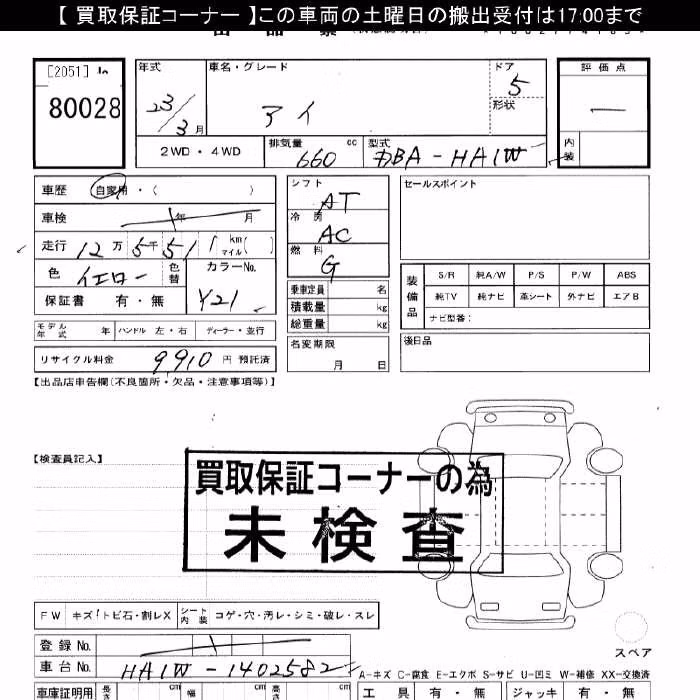 【 買取保証コーナー 】この車両の土曜日の搬出受付は17:00まで
[2051]
80028
年式
23/3月
車名・グレード
アイ
ドア
5
形状
評価点
内装
2WD・4WD
排気量 660 cc
型式 DBA-HA1W
車歴 自家用・( )
車検 年 月
走行 12万5千51 km マイル ( )
色 イエロー 色替
カラーNo. Y21
保証書 有・無
シフト AT
冷房 AC
燃料 G
乗車定員 名
積載量 kg
総重量 kg
名変期限 月 日
セールスポイント
装備品
S/R 純A/W P/S P/W ABS
純TV 純ナビ 革シート 外ナビ エアB
ナビ型番:
後日品
モデル年式 年 ハンドル 左・右 ディーラー・並行
リサイクル料金 9910 円 預託済
【出品店申告欄(不良箇所・欠品・注意事項等)】
【検査員記入】
買取保証コーナーの為
未検査
FW キズ/トビ石・割レX シート内装 コゲ・穴・汚レ・シミ・破レ・スレ
スペア
登録No.
車台No. HA1W-1402582
A-キズ C-腐食 E-エクボ S-サビ U-凹ミ W-補修 XX-交換済
車庫証明用 長さ cm 幅 cm 高さ cm
工具 有・無 ジャッキ 有・無